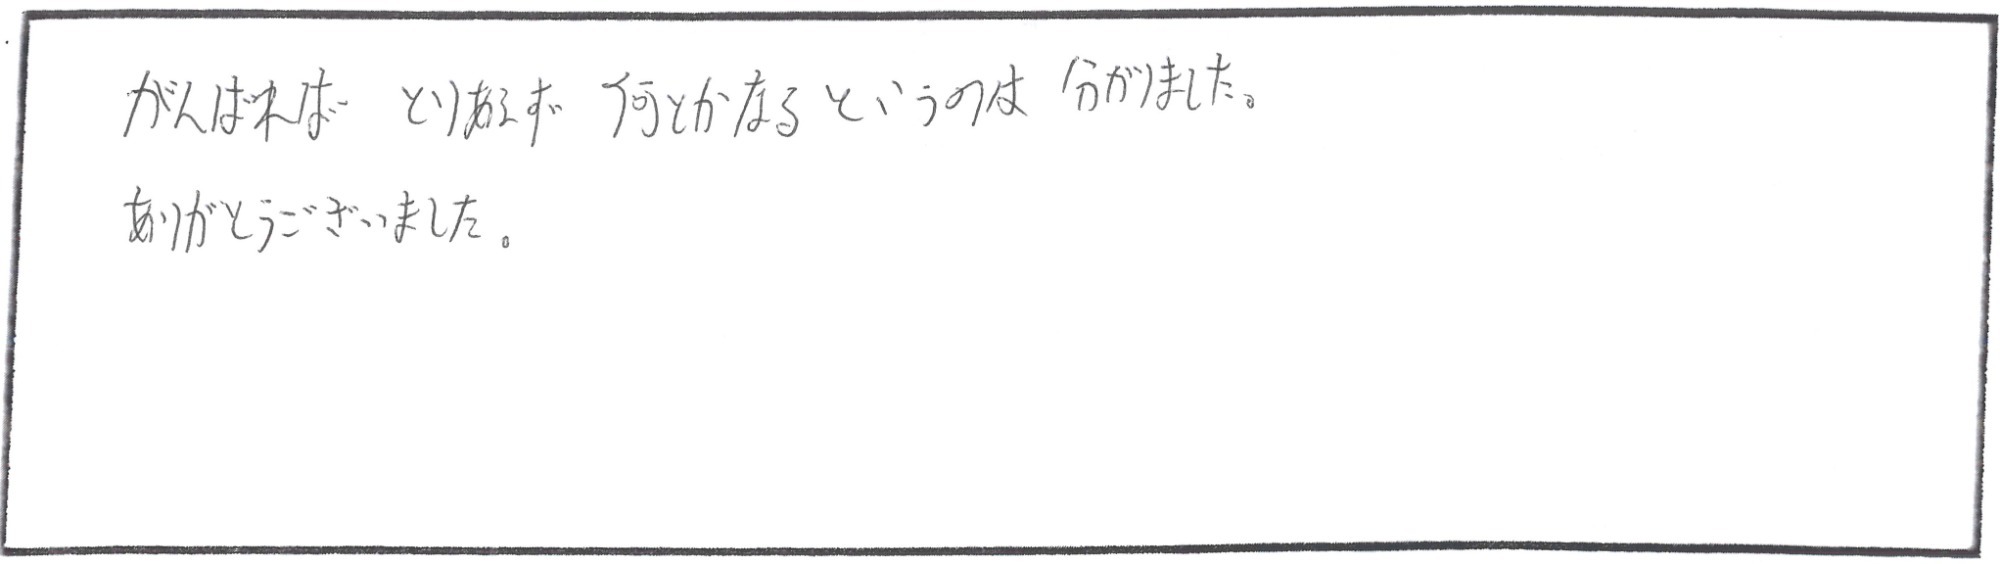 がんばれば とりあえず 何とかなるというのは 分かりました。
ありがとうございました。